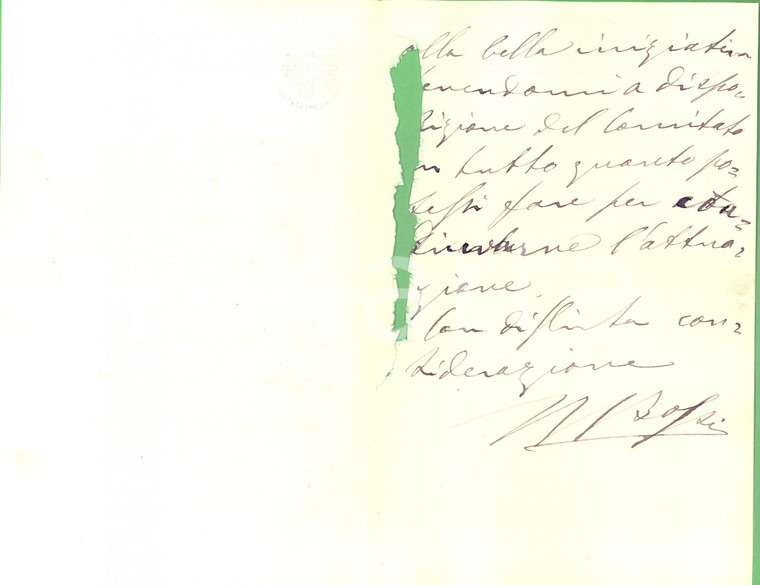 alla bella iniziativa
tenendomi a dispo=
sizione del Comitato
in tutto quanto po=
tessi fare per
l'attua=
zione.
Con distinta con=
siderazione
Bossi